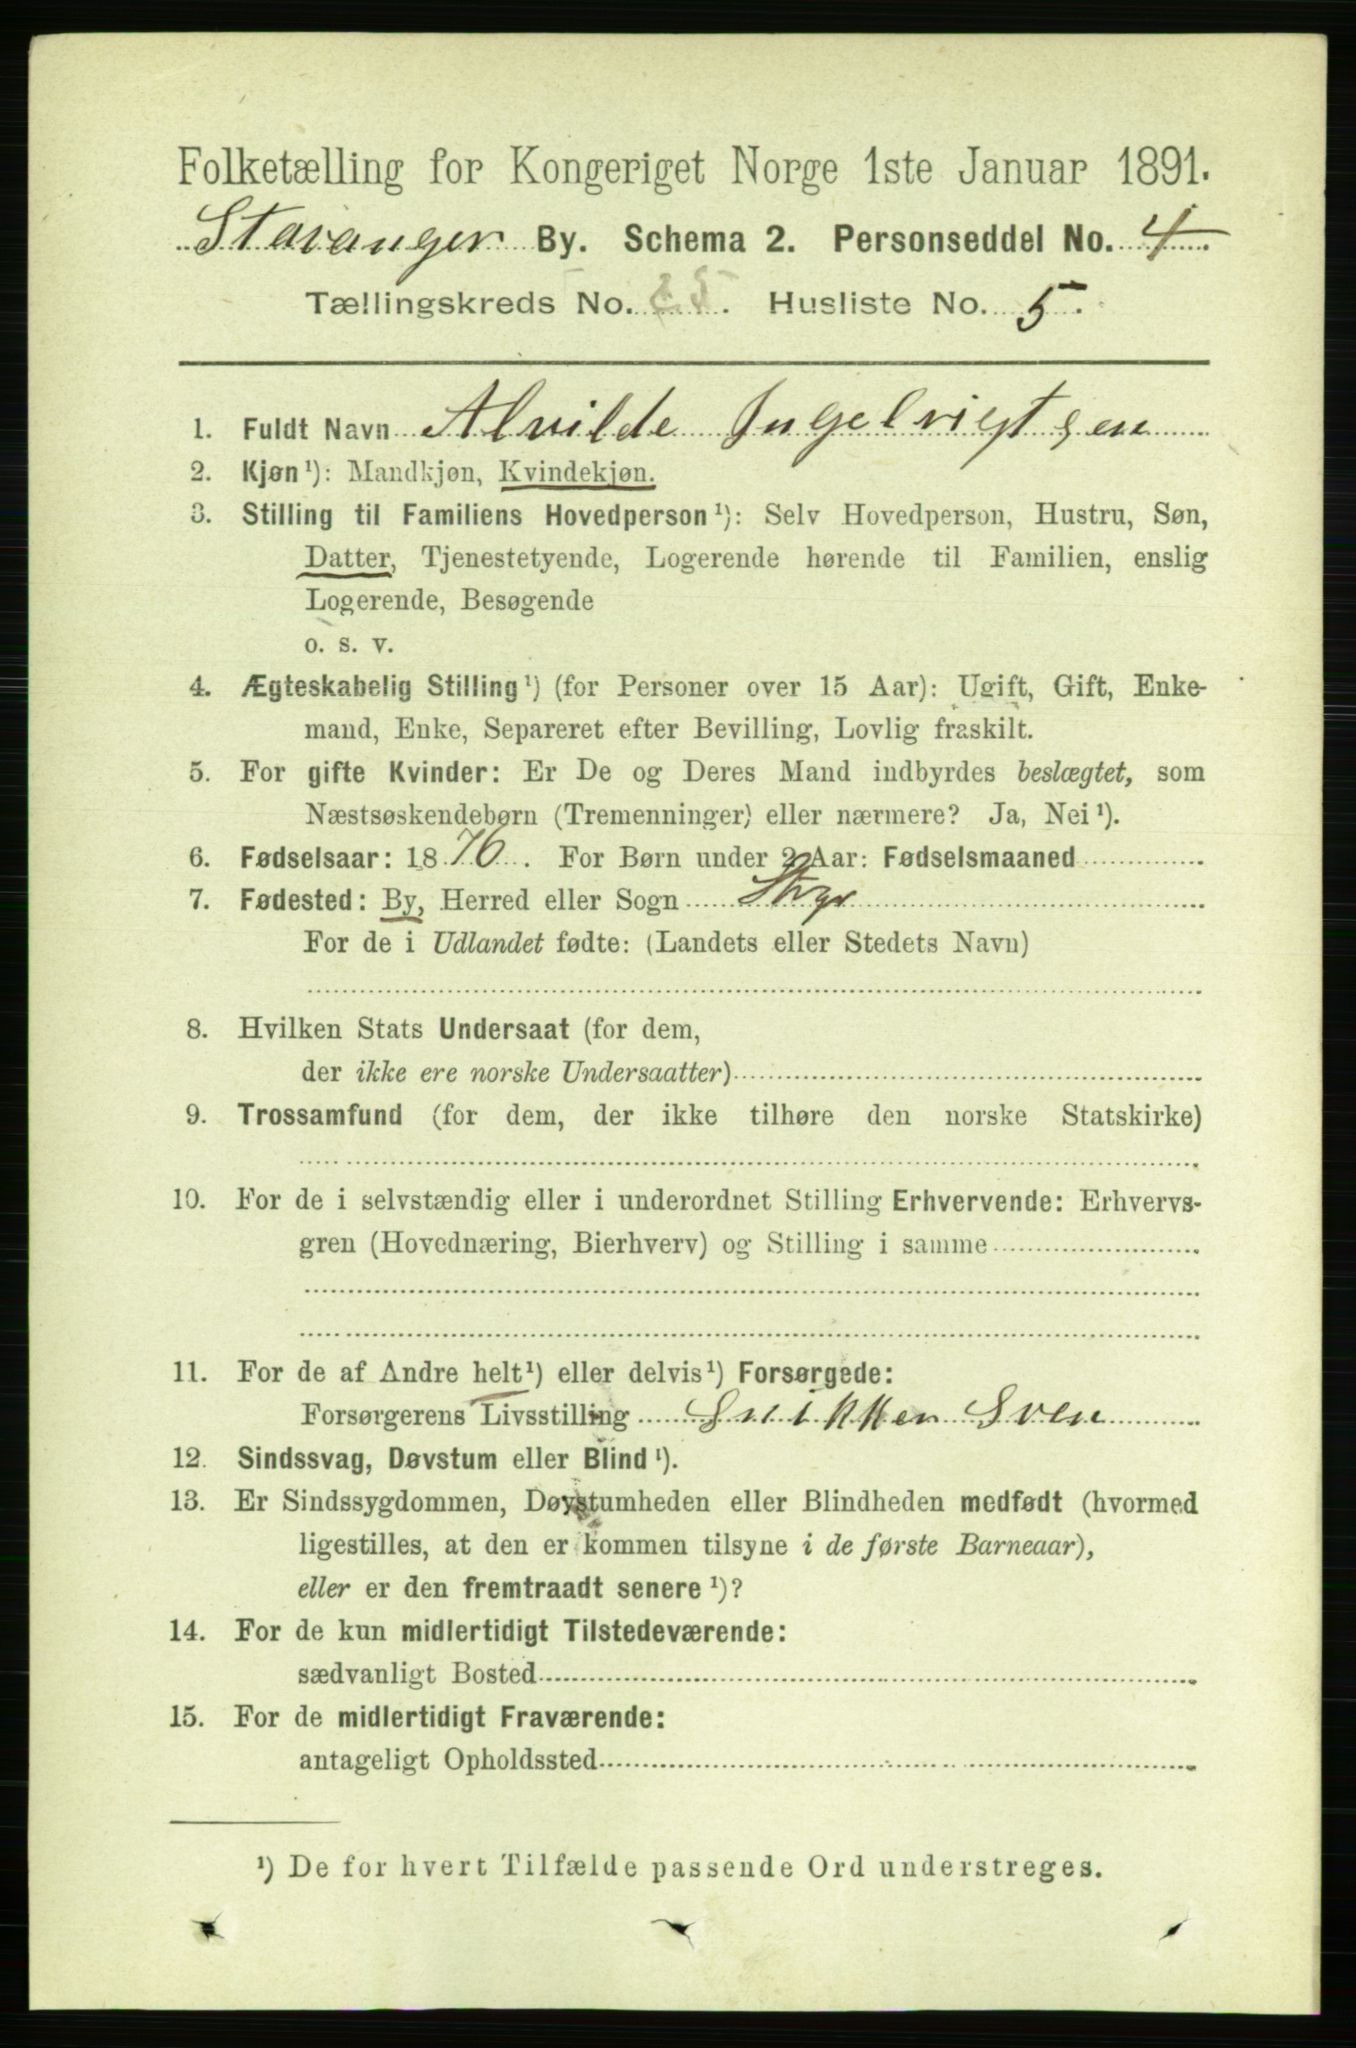 Folketælling for Kongeriget Norge 1ste Januar 1891.
Stavanger By. Schema 2. Personseddel No. 4
Tællingskreds No. 25. Husliste No. 5.
1. Fuldt Navn Alvilde Ingelvigtsen
2. Kjøn ¹): Mandkjøn, Kvindekjøn.
3. Stilling til Familiens Hovedperson ¹): Selv Hovedperson, Hustru, Søn,
Datter, Tjenestetyende, Logerende hørende til Familien, enslig
Logerende, Besøgende
o. s. v.
4. Ægteskabelig Stilling ¹) (for Personer over 15 Aar): Ugift, Gift, Enke-
mand, Enke, Separeret efter Bevilling, Lovlig fraskilt.
5. For gifte Kvinder: Er De og Deres Mand indbyrdes beslægtet, som
Næstsøskendebørn (Tremenninger) eller nærmere? Ja, Nei ¹).
6. Fødselsaar: 1876. For Børn under 2 Aar: Fødselsmaaned
7. Fødested: By, Herred eller Sogn Stvgr
For de i Udlandet fødte: (Landets eller Stedets Navn)
8. Hvilken Stats Undersaat (for dem,
der ikke ere norske Undersaatter)
9. Trossamfund (for dem, der ikke tilhøre den norske Statskirke)
10. For de i selvstændig eller i underordnet Stilling Erhvervende: Erhvervs-
gren (Hovednæring, Bierhverv) og Stilling i samme
11. For de af Andre helt ¹) eller delvis ¹) Forsørgede:
Forsørgerens Livsstilling Snikker Sven
12. Sindssvag, Døvstum eller Blind ¹).
13. Er Sindssygdommen, Døvstumheden eller Blindheden medfødt (hvormed
ligestilles, at den er kommen tilsyne i de første Barneaar),
eller er den fremtraadt senere ¹)?
14. For de kun midlertidigt Tilstedeværende:
sædvanligt Bosted
15. For de midlertidigt Fraværende:
antageligt Opholdssted
¹) De for hvert Tilfælde passende Ord understreges.